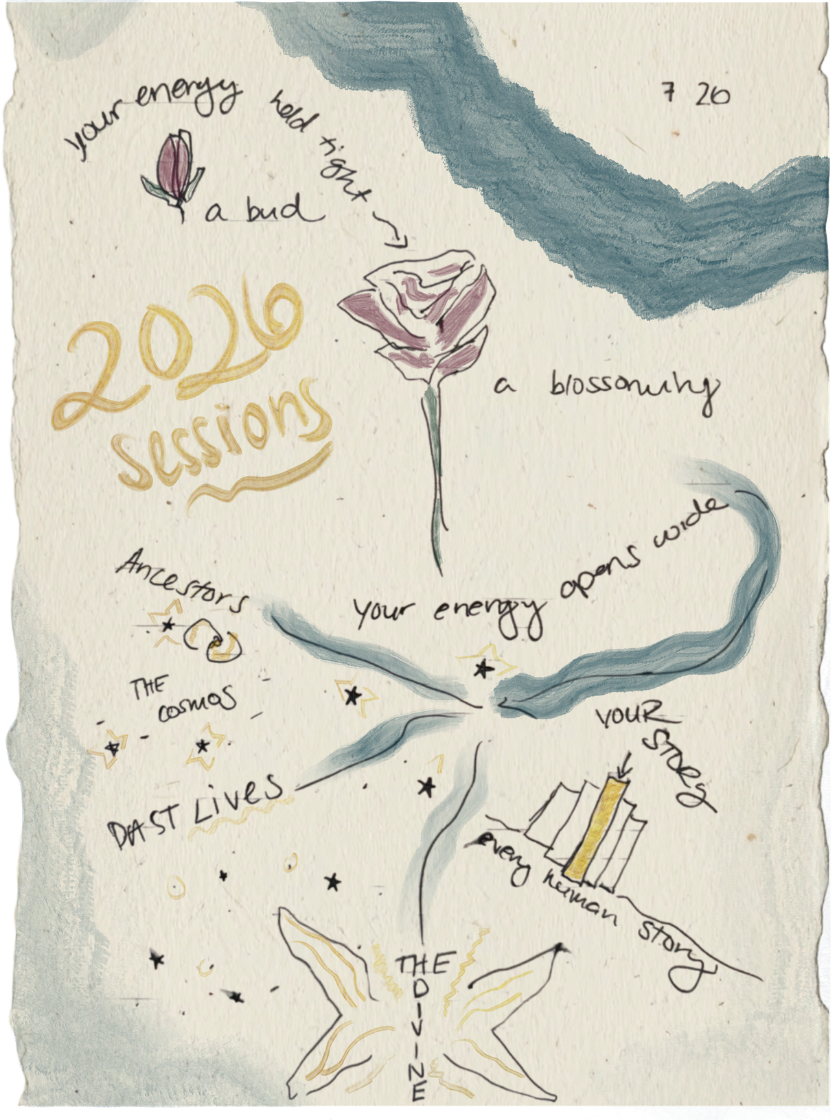 7 26
your energy held tight
a bud
2026
sessions
a blossoming
your energy opens wide
Ancestors
THE
cosmos
PAST LIVES
YOUR
STORY
every human story
THE
DIVINE